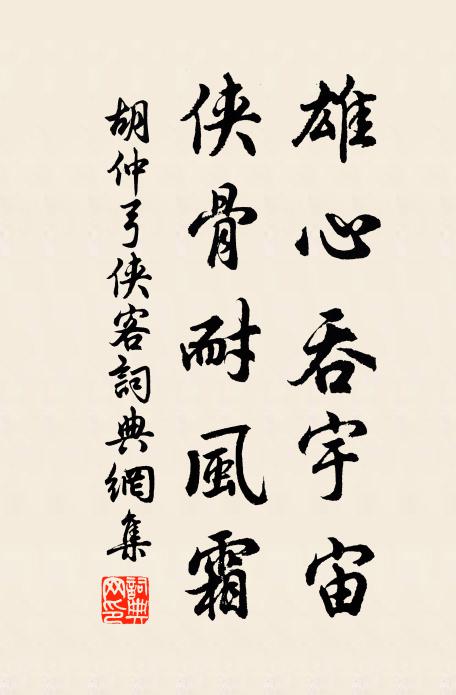 雄心吞宇宙
俠骨耐風霜
胡仲弓俠客詞典網集
詞典網印